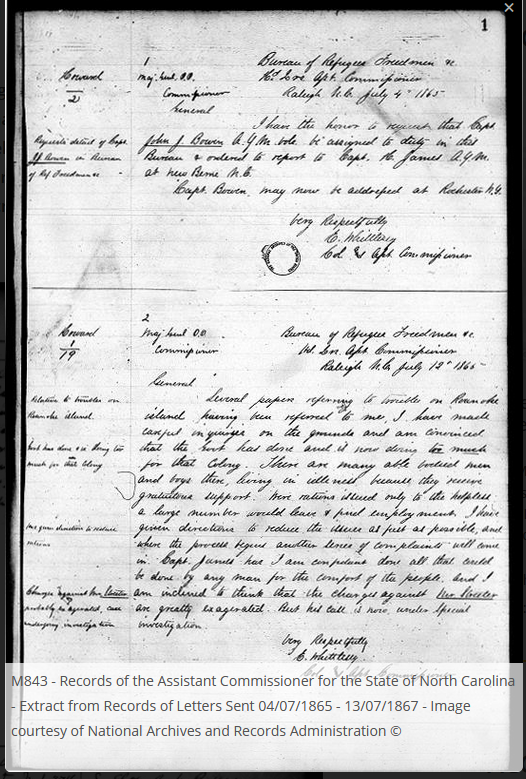 1
Howard
2
Requests detail of Capt
J J Bowen in Bureau
of Ref Freedmen &c
1
Maj. Genl. O.O.
Commissioner
General
Bureau of Refugee Freedmen &c.
Hd Qrs Asst. Commissioner
Raleigh N.C. July 4th 1865
I have the honor to request that Capt.
John J. Bowen A.Q.M. vols. be assigned to duty in this
Bureau & ordered to report to Capt. H. James A.Q.M.
at New Berne N.C.
Capt. Bowen may now be addressed at Rochester N.Y.
Very Respectfully
E. Whittlesey
Col & Asst Commissioner
Howard
1
19
Relative to troubles on
Roanoke island.
Govt has done & is doing too
much for that Colony
Has given directions to reduce
rations
Charges against
probably exagerated, case
undergoing investigation
2
Maj Genl O.O.
Commissioner
General
Bureau of Refugee Freedmen &c.
Hd Qrs. Asst Commissioner
Raleigh N.C. July 12th 1865
Several papers referring to trouble on Roanoke
island having been referred to me, I have made
careful inquiries on the grounds and am convinced
that the Govt has done and is now doing too much
for that Colony. There are many able bodied men
and boys there, living in idleness because they receive
gratuitous support. Were rations issued only to the helpless
a large number would leave & find employment. I have
given directions to reduce the issues as fast as possible, and
when the process begins another series of complaints will come
in. Capt. James has I am confident done all that could
be done by any man for the comfort of the people. and I
am inclined to think that the charges against
are greatly exagerated. But his case is now under Special
investigation
Very Respectfully
E. Whittlesey
Col & Asst Commissioner
M843 - Records of the Assistant Commissioner for the State of North Carolina
- Extract from Records of Letters Sent 04/07/1865 - 13/07/1867 - Image
courtesy of National Archives and Records Administration ©